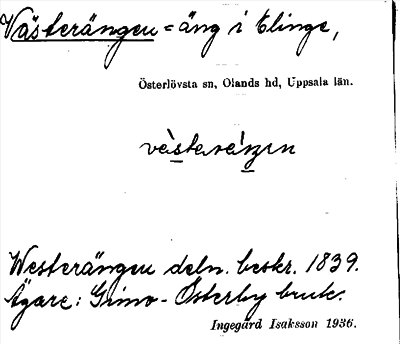 Västerängen = äng i Elinge,
Österlövsta sn, Olands hd, Uppsala län.
Westerängen deln. beskr. 1839.
Ägare: Gimo-Österby bruk.
Ingegärd Isaksson 1936.